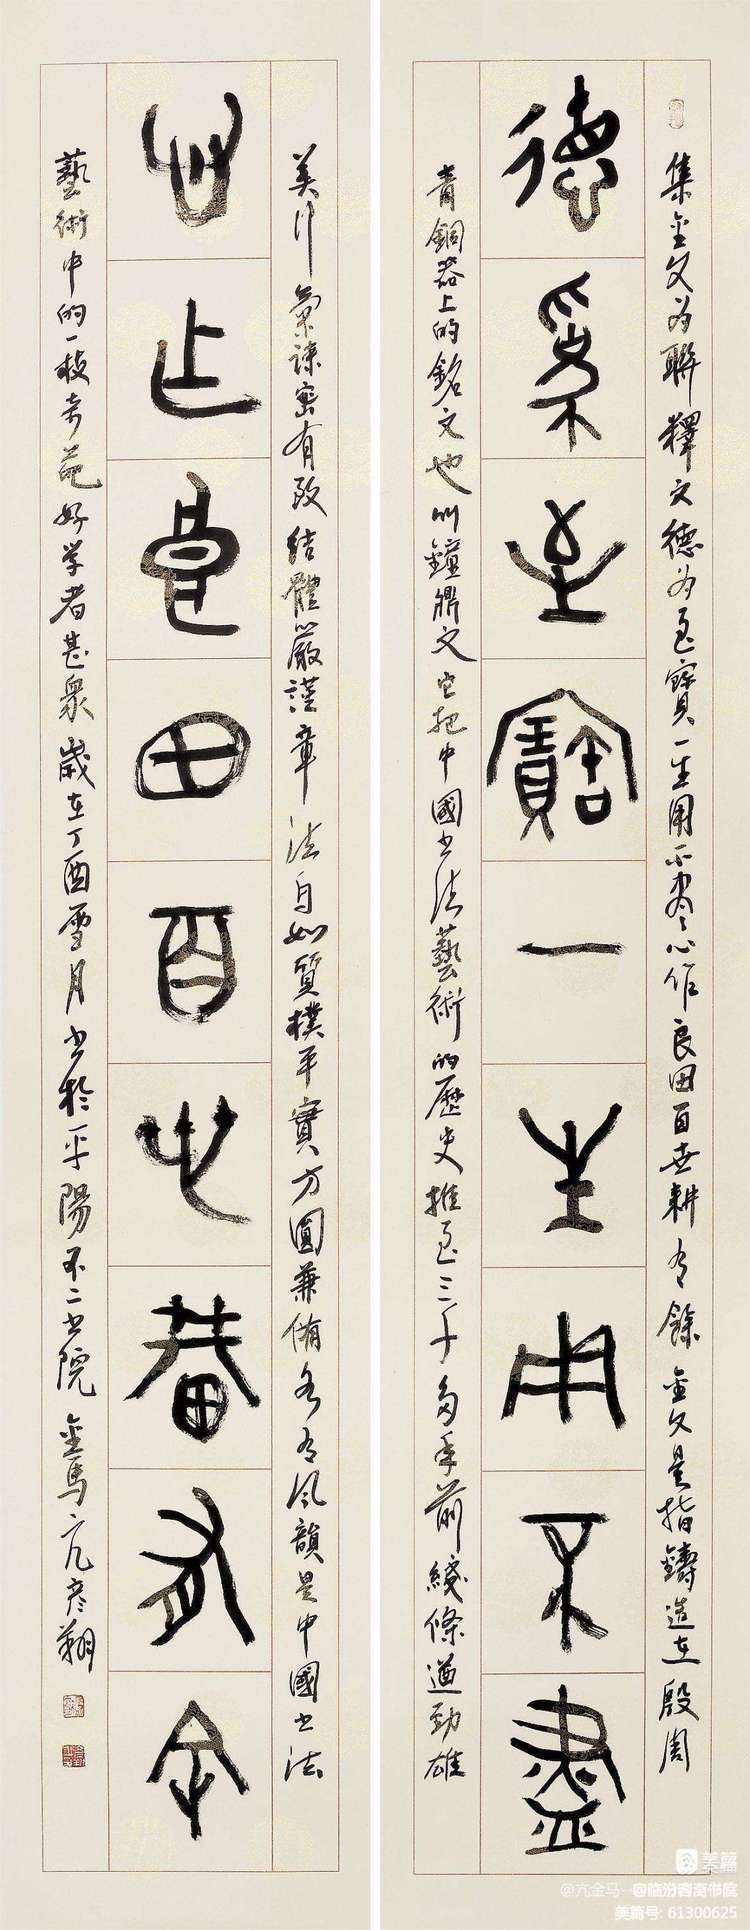 集金文为聯釋文德为至寶一生用不盡心作良田百世耕有餘金文是指鑄造在殷周
德為至寶一生用不盡
青銅器上的銘文也叫鐘鼎文它把中國书法藝術的歷史推至三千多年前綫條遒勁雄
美行氣疎密有致結體嚴謹章法自如質樸平實方圓兼備各有风韻是中國书法
心作良田百世耕有余
藝術中的一枝奇葩好学者甚眾歲在丁酉雪月书於平陽不二书院金馬亢彦翔
美篇
@亢金马
美篇号: 61300625